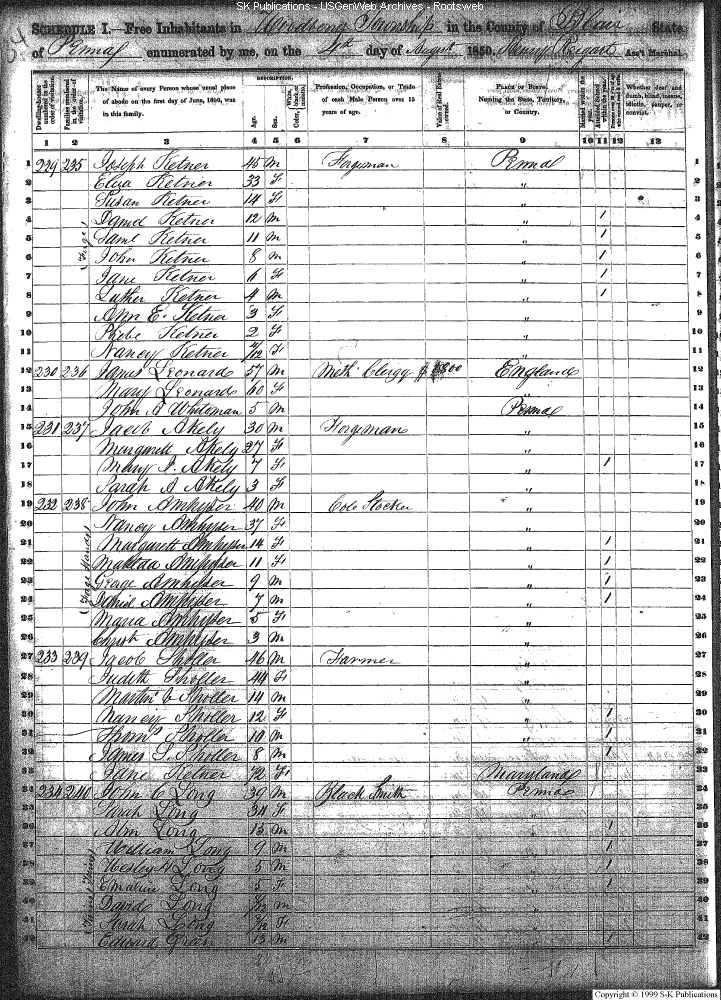 SK Publications - USGenWeb Archives - Rootsweb
SCHEDULE I.—Free Inhabitants in Township in the County of Blair State
of Penna enumerated by me, on the day of August 1850. Henry Ass't Marshal.
DESCRIPTION.
Dwelling-houses numbered in the order of visitation.
Families numbered in the order of visitation.
The Name of every Person whose usual place of abode on the first day of June, 1850, was in this family.
Age.
Sex.
White, black, or mulatto. Color
Profession, Occupation, or Trade of each Male Person over 15 years of age.
Value of Real Estate owned.
PLACE OF BIRTH. Naming the State, Territory, or Country.
Married within the year.
Attended School within the year.
Whether deaf and dumb, blind, insane, idiotic, pauper, or convict.
1 2 3 4 5 6 7 8 9 10 11 12 13
1 229 235 Joseph Ketner 45 M Forgeman Penna 1
2 Eliza Ketner 33 F " 2
3 Susan Ketner 14 F " 3
4 Ketner 12 M " 1 4
5 Saml Ketner 11 M " 1 5
6 John Ketner 8 M " 1 6
7 Jane Ketner 6 F " 1 7
8 Luther Ketner 4 M " 1 8
9 Ann E. Ketner 3 F " 9
10 Phebe Ketner 2 F " 10
11 Nancy Ketner /12 F " 11
12 230 236 James Leonard 57 M Meth Clergy $ England 12
13 Mary Leonard 60 F " 13
14 John A Whiteman 5 M Penna 14
15 231 237 Jacob Akely 30 M Forgeman " 15
16 Margarett Akely 27 F " 16
17 Mary Akely 7 F " 1 17
18 Sarah A Akely 3 F " 18
19 232 238 John Amhyser 40 M Cole Stocker " 19
20 Nancy Amhyser 37 F " 20
21 Margarett Amhyser 14 F " 1 21
22 Matilda Amhyser 11 F " 1 22
23 George Amhyser 9 M " 1 23
24 Amhyser 7 M " 1 24
25 Maria Amhyser 5 F " 25
26 Christ Amhyser 3 M " 26
27 233 239 Jacob Sholler 46 M Farmer " 27
28 Judith Sholler 44 F " 28
29 Martin C Sholler 14 M " 29
30 Nancy Sholler 12 F " 1 30
31 Thoms Sholler 10 M " 1 31
32 James S. Sholler 8 M " 1 32
33 Jane Ketner 72 F Maryland 33
34 234 240 John C Long 39 M Black Smith Penna 34
35 Sarah Long 34 F " 35
36 Long 13 M " 1 36
37 William Long 9 M " 1 37
38 Wesley H Long 5 M " 1 38
39 Emaline Long 5 F " 1 39
40 David Long /12 M " 40
41 Sarah Long /12 F " 41
42 Edward 13 M " 1 42
Copyright © 1999 S-K Publications